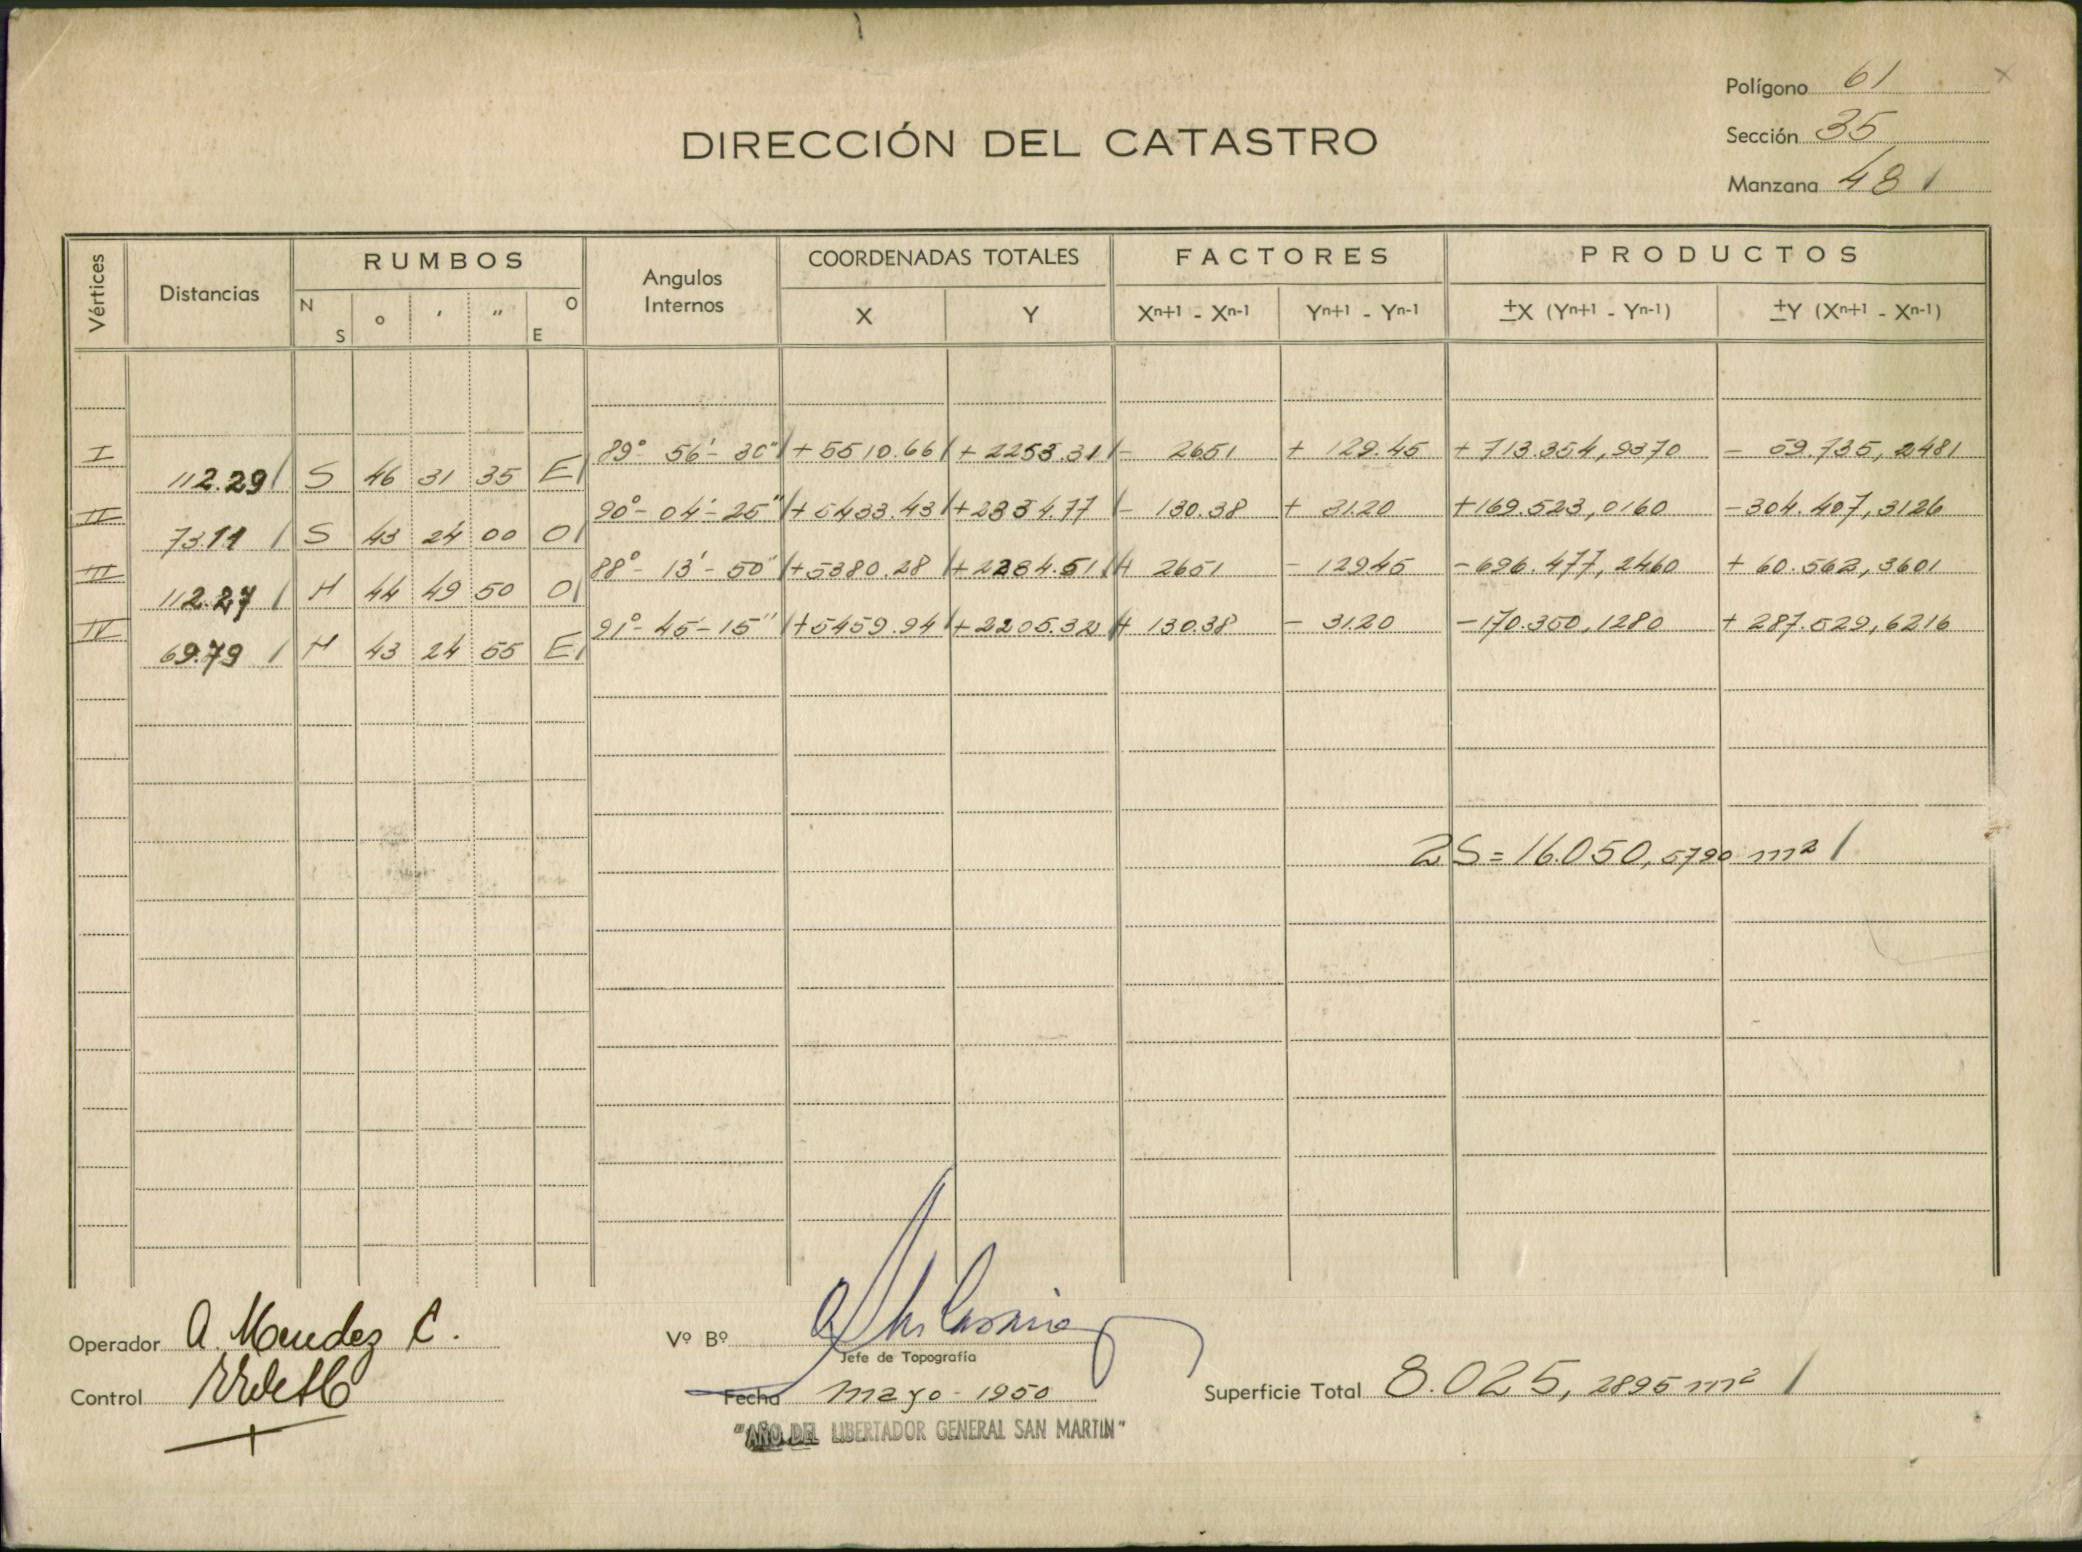 Polígono 61
DIRECCIÓN DEL CATASTRO
Sección 35
Manzana 481
Vértices Distancias RUMBOS Angulos Internos COORDENADAS TOTALES FACTORES PRODUCTOS
N S ° ' " O E X Y Xn+1 - Xn-1 Yn+1 - Yn-1 ±X (Yn+1 - Yn-1) ±Y (Xn+1 - Xn-1)
I 89° 56' - 30" + 5510.66 + 2253.31 - 26.51 + 129.45 + 713.354,9370 - 59.735,2481
112.29 S 46 31 35 E
II 90° - 04' - 25" + 5433.43 + 2334.77 - 130.38 + 31.20 + 169.523,0160 - 304.407,3126
73.11 S 43 24 00 O
III 88° - 13' - 50" + 5380.28 + 2284.51 + 26.51 - 129.45 - 696.477,2460 + 60.562,3601
112.27 N 44 49 50 O
IV 91° - 45' - 15" + 5459.94 + 2205.32 + 130.38 - 31.20 - 170.350,1280 + 287.529,6216
69.79 N 43 24 55 E
2S = 16.050,5790 m²
Operador A. Mendez C.
Vº Bº
Jefe de Topografía
Control
Fecha mayo - 1950
Superficie Total 8.025, 2895 m²
"AÑO DEL LIBERTADOR GENERAL SAN MARTIN"